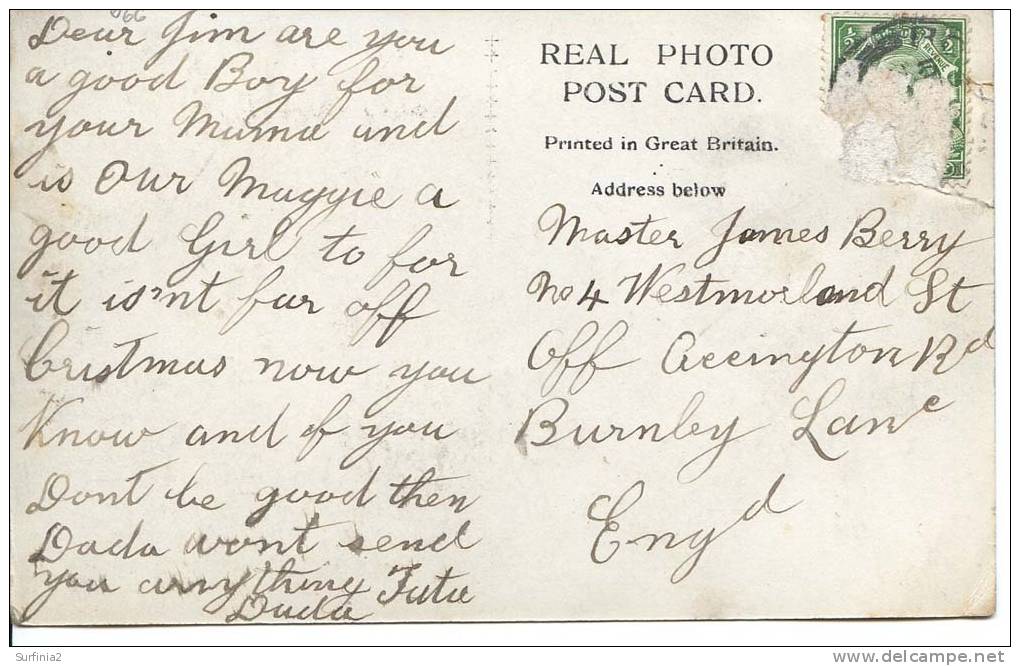 Dear Jim are you
a good Boy for
your Mama and
is Our Maggie a
good Girl to for
it is'nt far off
Cristmas now you
Know and if you
Dont be good then
Dada wont send
you anything Tata
Dada
REAL PHOTO
POST CARD.
Printed in Great Britain.
Address below
Master James Berry
No 4 Westmorland St
Off Accington Rd
Burnley Lanc
Engd
1/2 REVENUE 1/2
Surfinia2